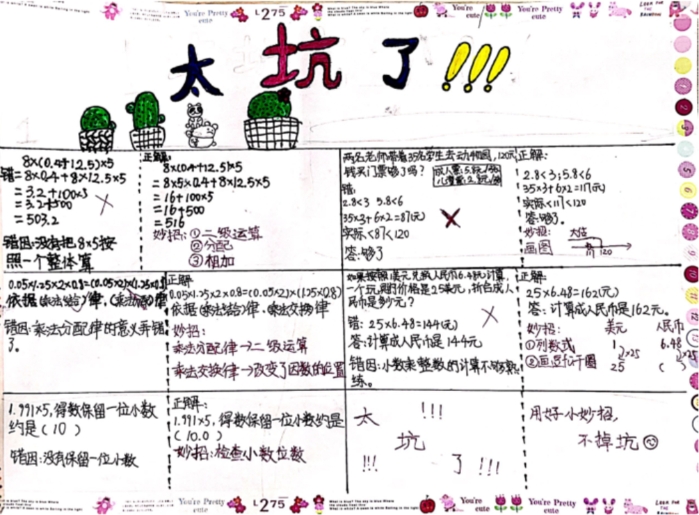 You're Pretty cute
L275
You're Pretty cute
You're Pretty cute
太坑了!!!
8×(0.4+12.5)×5
错=8×0.4+8×12.5×5
=3.2+100×5
=3.2+500
=503.2
错因:没有把8×5按
照一个整体算
正解:
8×(0.4+12.5)×5
=8×5×0.4+8×12.5×5
=16+100×5
=16+500
=516
妙招:①二级运算
②分配
③相加
两名老师带着35名学生去动物园,120元
钱买门票够了吗?
错:
2.8<3 5.8<6
35×3+6×2=87(元)
实际<87<120
答:够了
正解:
2.8<3;5.8<6
35×3+6×2=117(元)
实际<117<120
答:够了。
妙招:大估
画图
117 120
0.05×1.25×2×0.8=(0.05×2)×(1.25×0.8)
依据(乘法结合)律,(乘法分配)律
错因:乘法分配律的意义弄错
了。
正解
0.05×1.25×2×0.8=(0.05×2)×(1.25×0.8)
依据(乘法结合)律,乘法交换律
妙招:
乘法分配律→二级运算
乘法交换律→改变了因数的位置
一个玩具的价格是25美元,折合成人民
币是多少元?
错:25×6.48=144(元)
答:计算成人民币是144元
错因:小数乘整数的计算不够熟
练。
正解:
25×6.48=162(元)
答:计算成人民币是162元。
妙招: 美元 人民币
①列数式 1 6.48
25 ( )
1.991×5,得数保留一位小数
约是(10)
错因:没有保留一位小数
正解:
1.991×5,得数保留一位小数约是
(10.0)
妙招:检查小数位数
太 !!!
坑
!!! 了!!!
用好小妙招,
不掉坑
You're Pretty cute
L275
You're cute
You're Pretty cute